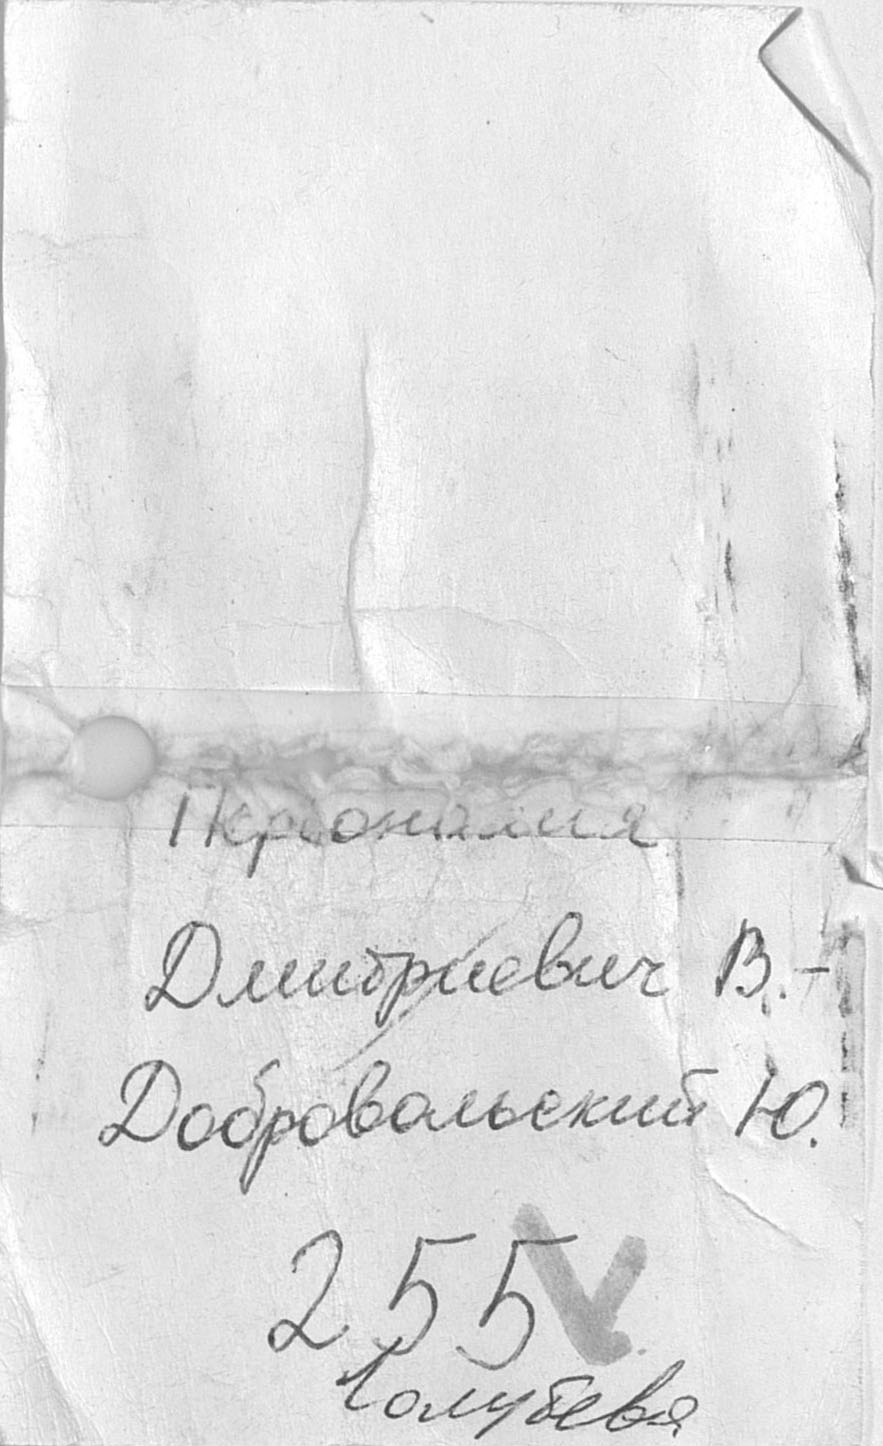 Персоналия
Дмитриевич В.-
Добровольский Ю.
255
Голубева